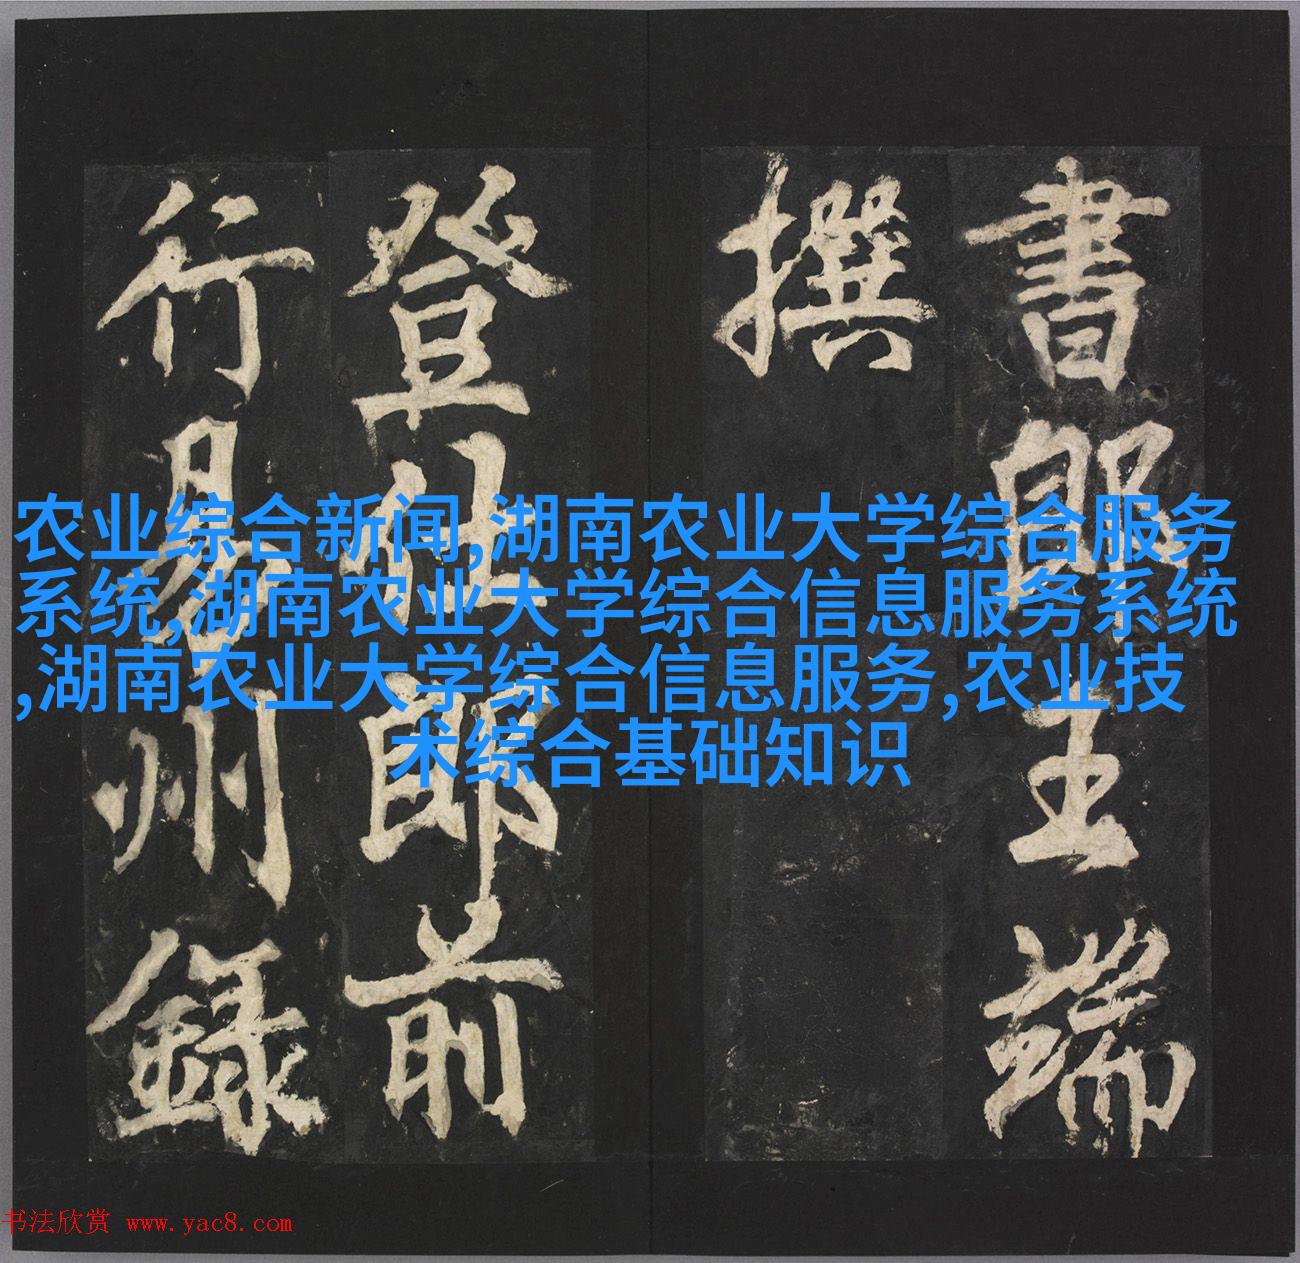 書郎王端
撰
登仕郎前
行易州錄
农业综合新闻,湖南农业大学综合服务
系统,湖南农业大学综合信息服务系统
,湖南农业大学综合信息服务,农业技
术综合基础知识
书法欣赏 www.yac8.com